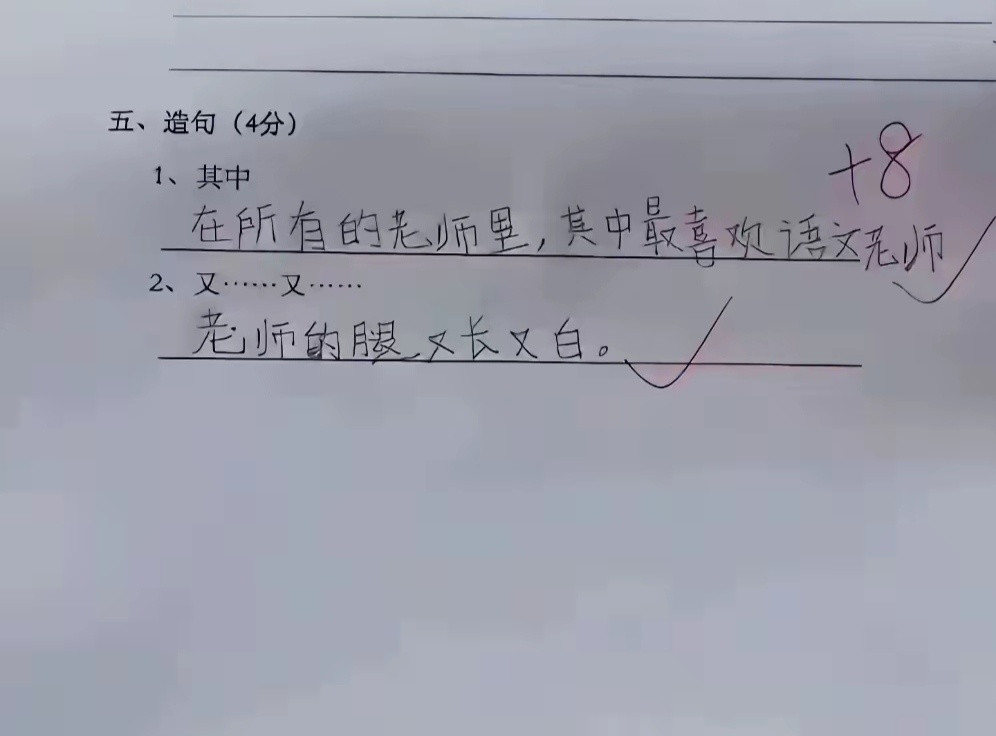 五、造句（4分）
+8
1、其中
在所有的老师里，其中最喜欢语文老师
2、又……又……
老师的腿又长又白。